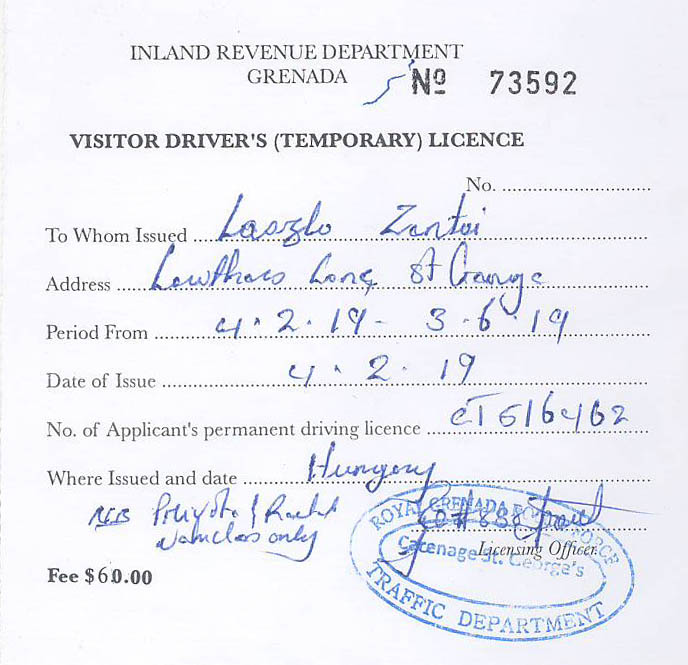 INLAND REVENUE DEPARTMENT
GRENADA
Nº 73592
VISITOR DRIVER'S (TEMPORARY) LICENCE
No. ..............................
To Whom Issued Laszlo Zentai
Address Lowthers Lane St George
Period From 4.2.19 - 3.6.19
Date of Issue 4.2.19
No. of Applicant's permanent driving licence CT516462
Where Issued and date Hungary
only
Licensing Officer.
Fee $60.00
ROYAL GRENADA POLICE FORCE
Carenage St. George's
TRAFFIC DEPARTMENT